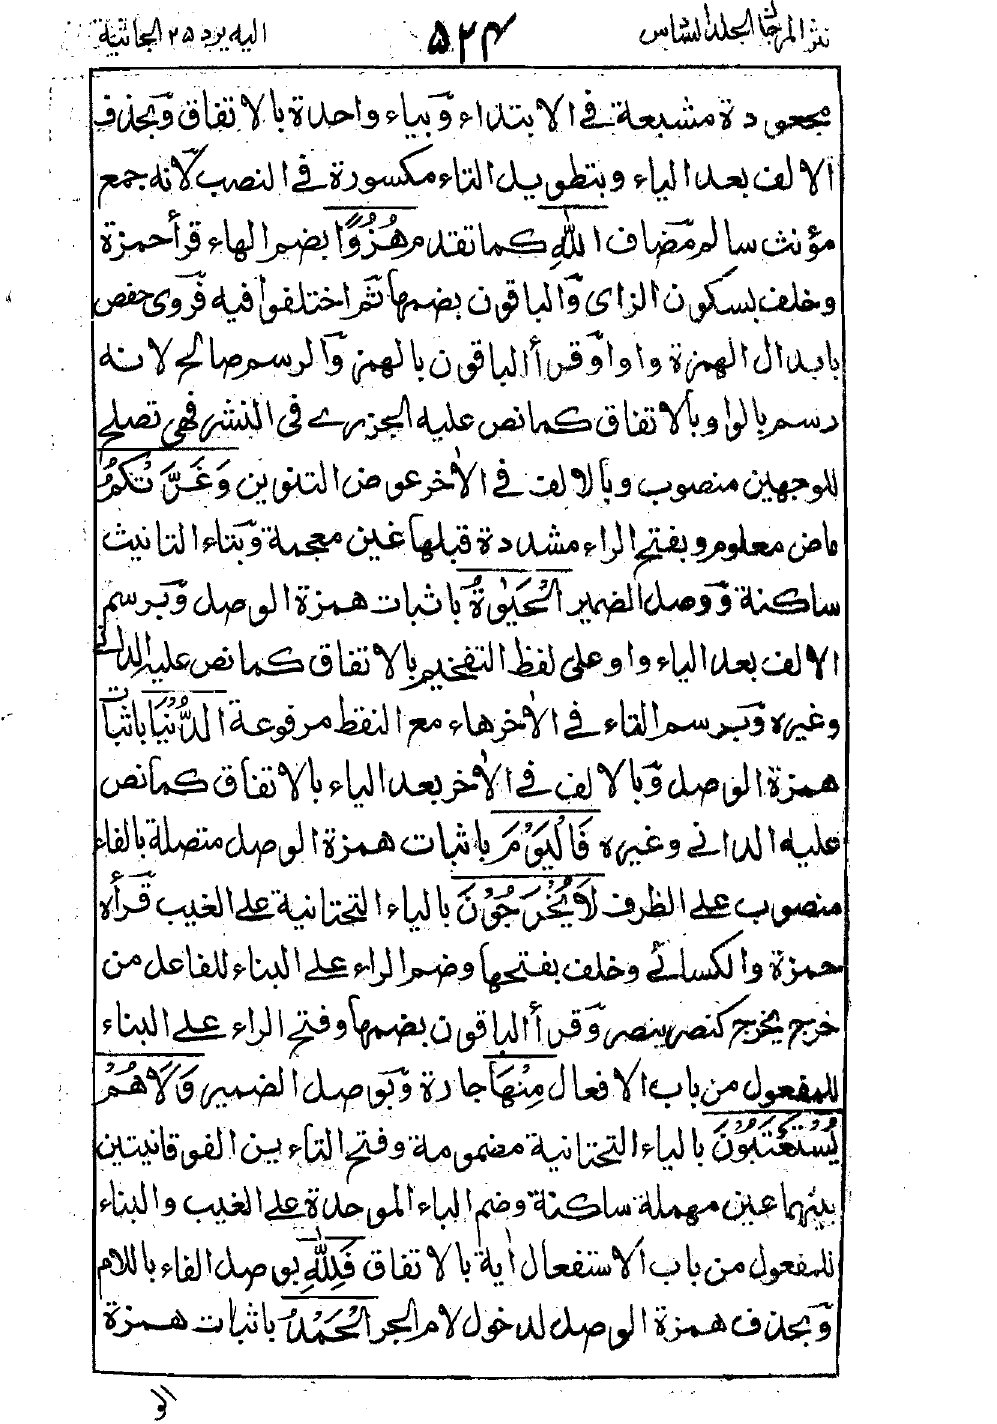 نثر المرجان المجلد السادس ٥٢٤ اليه يرد ٢٥ الجاثية
مجعودة مشبعة في الابتداء وبياء واحدة بالاتفاق وبحذف
الالف بعد الياء وبتطويل التاء مكسورة في النصب لانه جمع
مؤنث سالم مضاف اللّٰهِ كما تقدم هُزُوًا بضم الهاء قرأ حمزة
وخلف بسكون الزاى والباقون بضمها ثم اختلفوا فيه فروى حفص
بابدال الهمزة واوا وقرأ الباقون بالهمز والرسم صالح لانه
رسم بالواو بالاتفاق كما نص عليه الجزرى في النشر فهى تصلح
للوجهين منصوب وبالالف في الاٰخر عوض التنوين وَغَرَّتْكُمُ
ماض معلوم وبفتح الراء مشددة قبلها غين معجمة وبتاء التانيث
ساكنة ووصل الضمير الْحَيٰوةُ باثبات همزة الوصل وبرسم
الالف بعد الياء واو على لفظ التفخيم بالاتفاق كما نص عليه الدانى
وغيره وبرسم التاء في الاٰخر هاء مع النقط مرفوعة الدُّنْيَا باثبات
همزة الوصل وبالالف في الاٰخر بعد الياء بالاتفاق كما نص
عليه الدانى وغيره فَالْيَوْمَ باثبات همزة الوصل متصلة بالفاء
منصوب على الظرف لَا يُخْرَجُوْنَ بالياء التحتانية على الغيب قرأه
حمزة والكسائى وخلف بفتحها وضم الراء على البناء للفاعل من
خرج يخرج كنصر ينصر وقرأ الباقون بضمها وفتح الراء على البناء
للمفعول من باب الافعال مِنْهَا جادة وبوصل الضمير وَلَا هُمْ
يُسْتَعْتَبُوْنَ بالياء التحتانية مضمومة وفتح التاءين الفوقانيتين
بينهما عين مهملة ساكنة وضم الباء الموحدة على الغيب والبناء
للمفعول من باب الاستفعال اٰية بالاتفاق فَلِلّٰهِ بوصل الفاء باللام
وبحذف همزة الوصل لدخول لام الجر الْحَمْدُ باثبات همزة